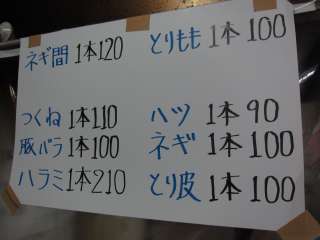 ネギ間 1本120 とりもも 1本 100
つくね 1本110 ハツ 1本 90
豚バラ 1本100 ネギ 1本 100
ハラミ 1本210 とり皮 1本 100